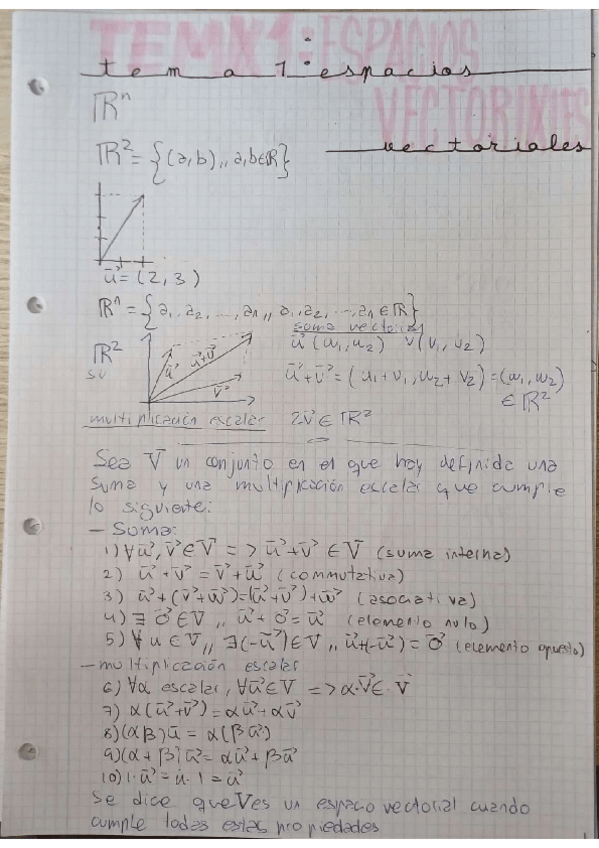 TEMA 1: ESPACIOS
tema 1: espacios
VECTORIALES
vectoriales
ℝⁿ
ℝ² = {(a,b) ,, a,b∈ℝ}
u⃗ = (2,3)
ℝⁿ = {a₁, a₂, ..., aₙ ,, a₁, a₂, ..., aₙ ∈ ℝ}
suma vectorial
ℝ² u⃗ u⃗+v⃗ v⃗ u⃗ (u₁, u₂) v(v₁, v₂)
su
u⃗+v⃗ = (u₁+v₁, u₂+v₂) = (w₁, w₂)
∈ ℝ²
multiplicación escalar 2v⃗ ∈ ℝ²
Sea V un conjunto en el que hay definida una
suma y una multiplicación escalar que cumple
lo siguiente:
- Suma:
1) ∀u⃗, v⃗ ∈ V => u⃗+v⃗ ∈ V (suma interna)
2) u⃗+v⃗ = v⃗+u⃗ (commutativa)
3) u⃗+(v⃗+w⃗)=(u⃗+v⃗)+w⃗ (asociativa)
4) ∃ 0⃗ ∈ V ,, u⃗+0⃗ = u⃗ (elemento nulo)
5) ∀ u ∈ V ,, ∃(-u⃗) ∈ V ,, u⃗+(-u⃗) = 0⃗ (elemento opuesto)
- multiplicación escalar
6) ∀α escalar, ∀u⃗ ∈ V => α·v⃗ ∈ V
7) α(u⃗+v⃗) = αu⃗+αv⃗
8) (αβ)u⃗ = α(βu⃗)
9) (α+β)u⃗ = αu⃗+βu⃗
10) 1·u⃗ = u·1 = u⃗
Se dice que V es un espacio vectorial cuando
cumple todas estas propiedades